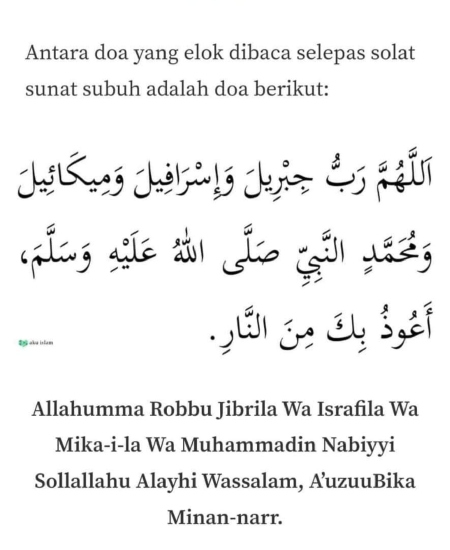 Antara doa yang elok dibaca selepas solat
sunat subuh adalah doa berikut:
اَللَّهُمَّ رَبُّ جِبْرِيلَ وَإِسْرَافِيلَ وَمِيكَائِيلَ
وَمُحَمَّدٍ النَّبِيِّ صَلَّى اللهُ عَلَيْهِ وَسَلَّمَ،
أَعُوذُ بِكَ مِنَ النَّارِ.
aku islam
Allahumma Robbu Jibrila Wa Israfila Wa
Mika-i-la Wa Muhammadin Nabiyyi
Sollallahu Alayhi Wassalam, A’uzuuBika
Minan-narr.